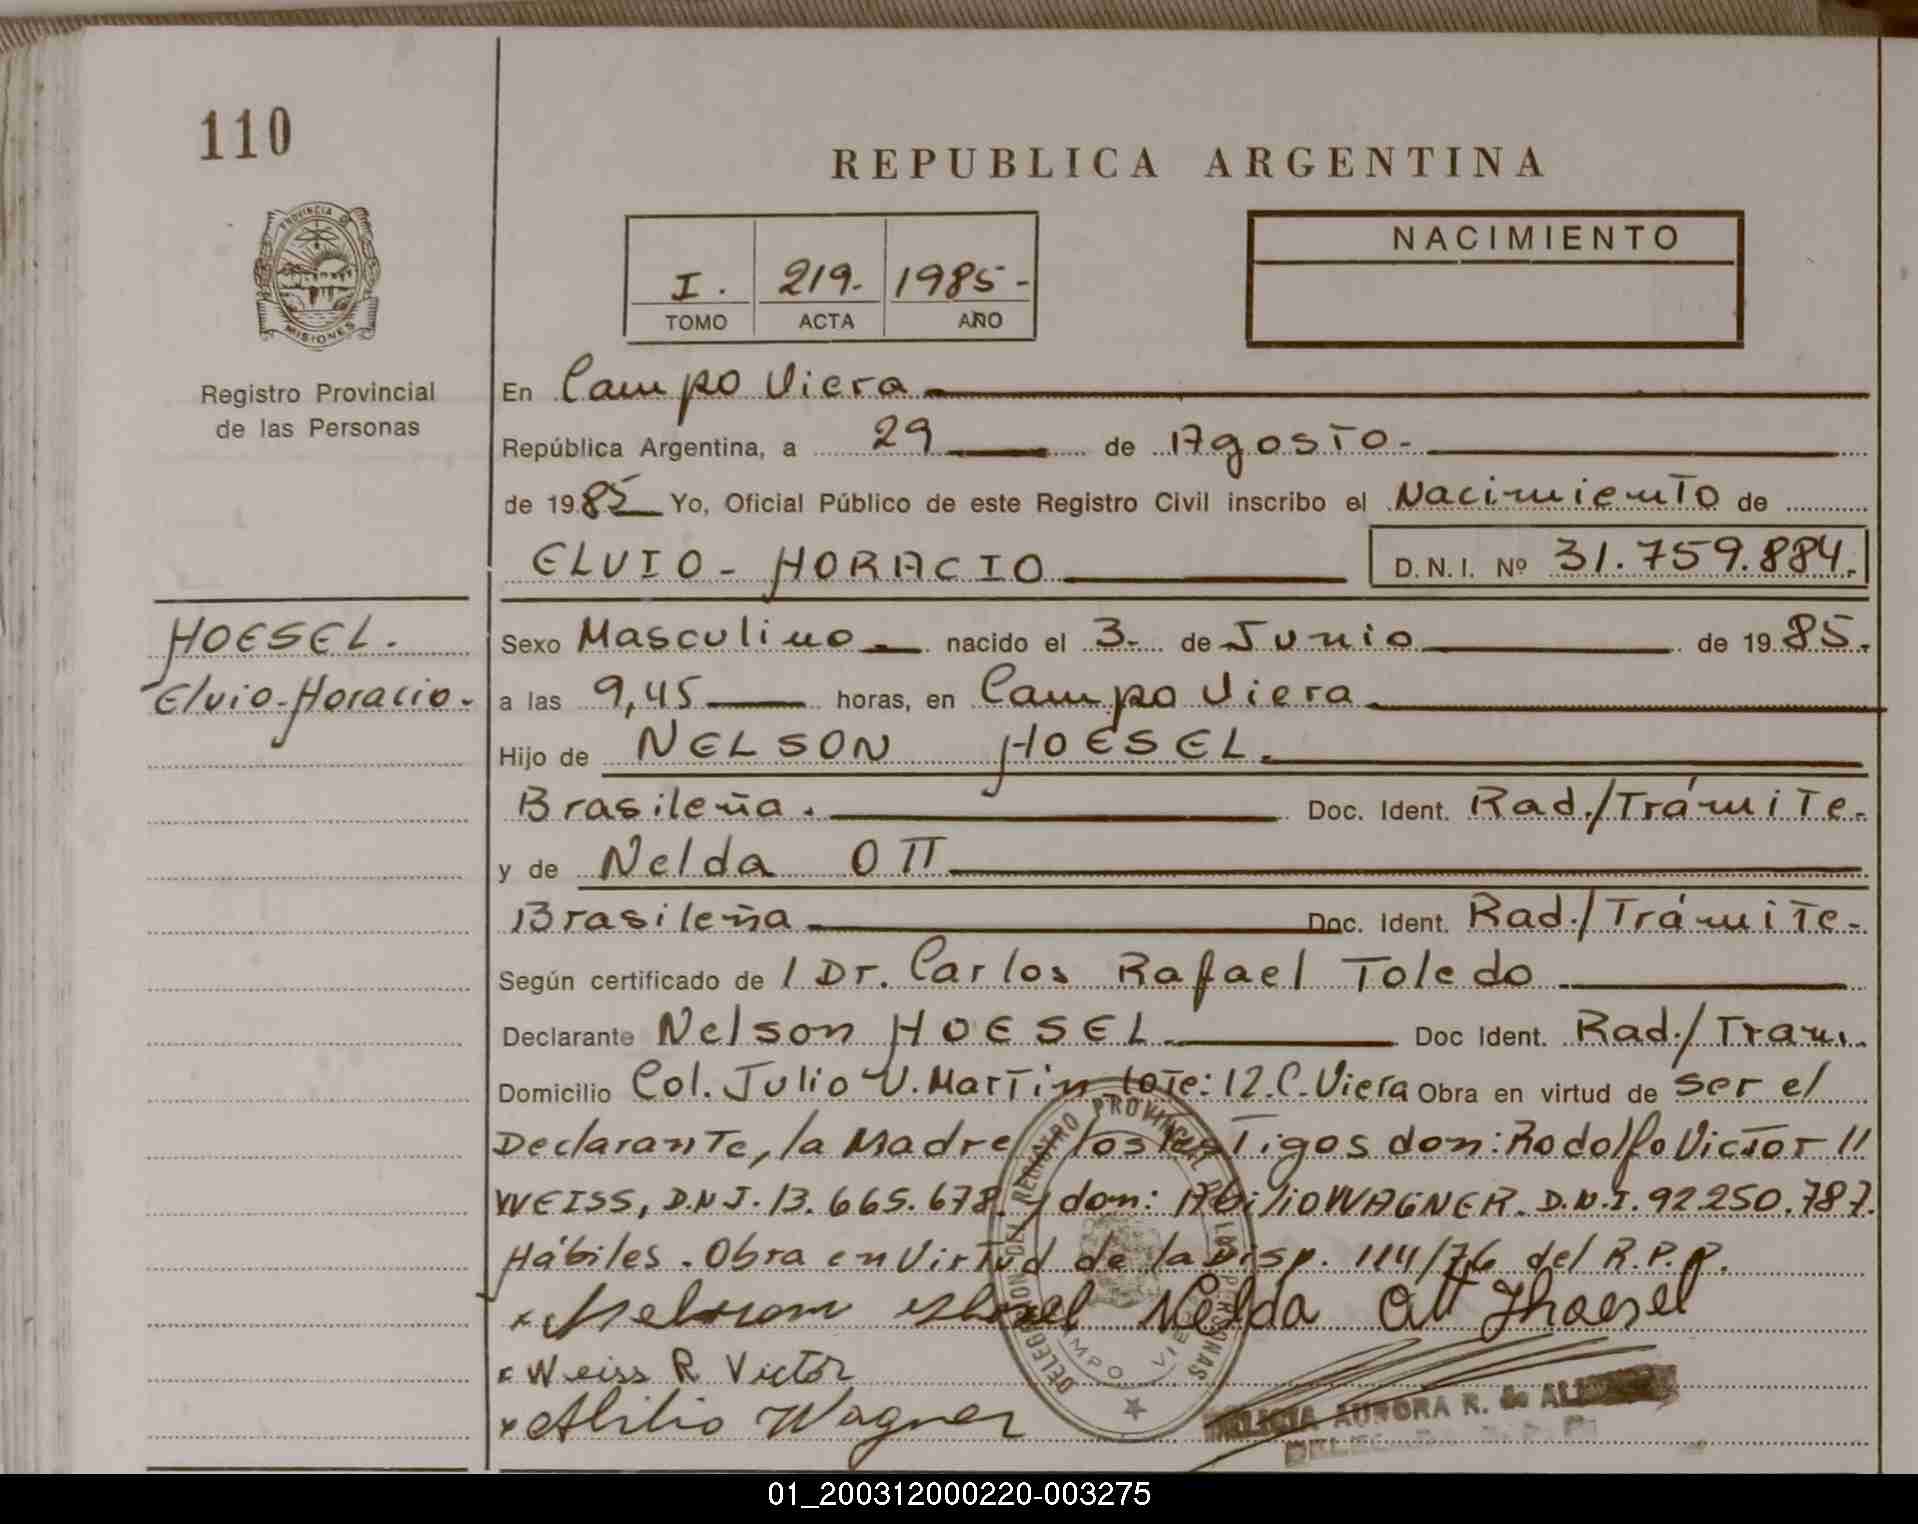 110
REPUBLICA ARGENTINA
PROVINCIA D
MISIONES
Registro Provincial
de las Personas
I. 219. 1985-
TOMO ACTA AÑO
NACIMIENTO
En Campo Viera
República Argentina, a 29 de Agosto-
de 1985 Yo, Oficial Público de este Registro Civil inscribo el Nacimiento de
ELVIO-HORACIO D.N.I. Nº 31.759.884.
HOESEL.
Elvio-Horacio-
Sexo Masculino nacido el 3- de Junio de 1985-
a las 9,45 horas, en Campo Viera
Hijo de NELSON HOESEL.
Brasileña. Doc. Ident. Rad./Trámite-
y de Nelda OTT
Brasileña Doc. Ident. Rad./Trámite-
Según certificado de l Dr. Carlos Rafael Toledo
Declarante Nelson HOESEL Doc Ident. Rad./Tram.
Domicilio Col. Julio U. Martin lote: 12.C.Viera Obra en virtud de ser el
Declarante, la Madre los testigos don: Rodolfo Victor
WEISS, D.N.I. 13.665.678. y don: Abilio WAGNER. D.N.I. 92.250.787.
Hábiles. Obra en Virtud de la Disp. 114/76 del R.P.P.
Nelson Hoesel Nelda Ott Hoesel
Weiss R Victor
Abilio Wagner
DELEGACION DEL REGISTRO PROVINCIAL DE LAS PERSONAS
CAMPO VIERA
AURORA R. de
01_200312000220-003275